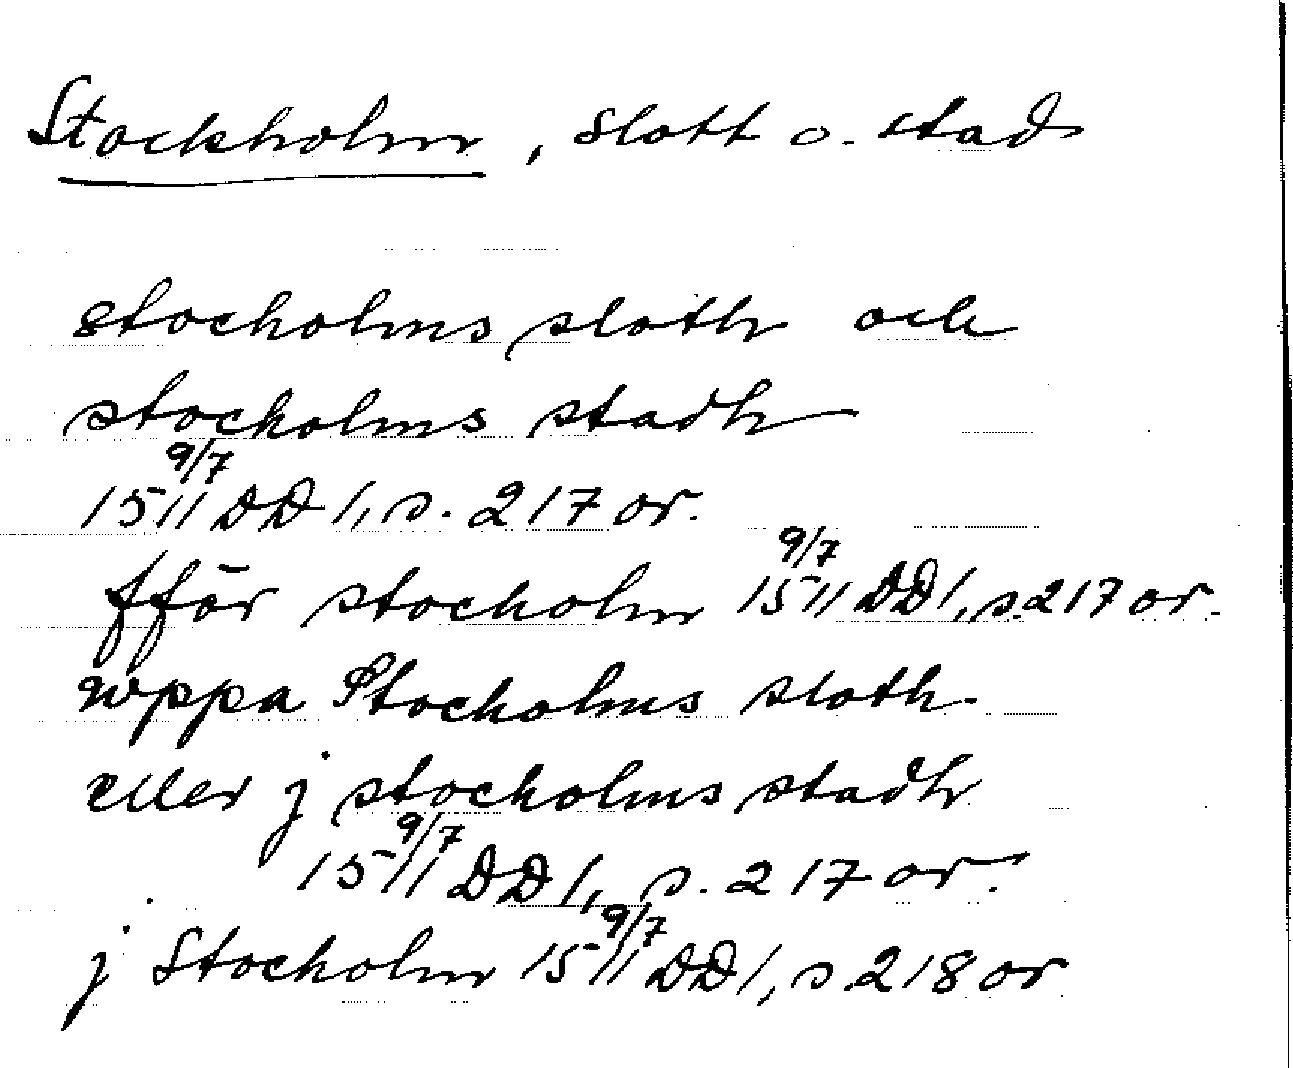 Stockholm, slott o. stad
stocholms sloth och
stocholms stadh
9/7
1511 DD 1, s. 217 or.
9/7
fför stocholm 1511 DD 1, s. 217 or.
wppa Stocholms sloth
eller j stocholms stadh
9/7
1511 DD 1, s. 217 or.
9/7
j Stocholm 1511 DD 1, s 218 or